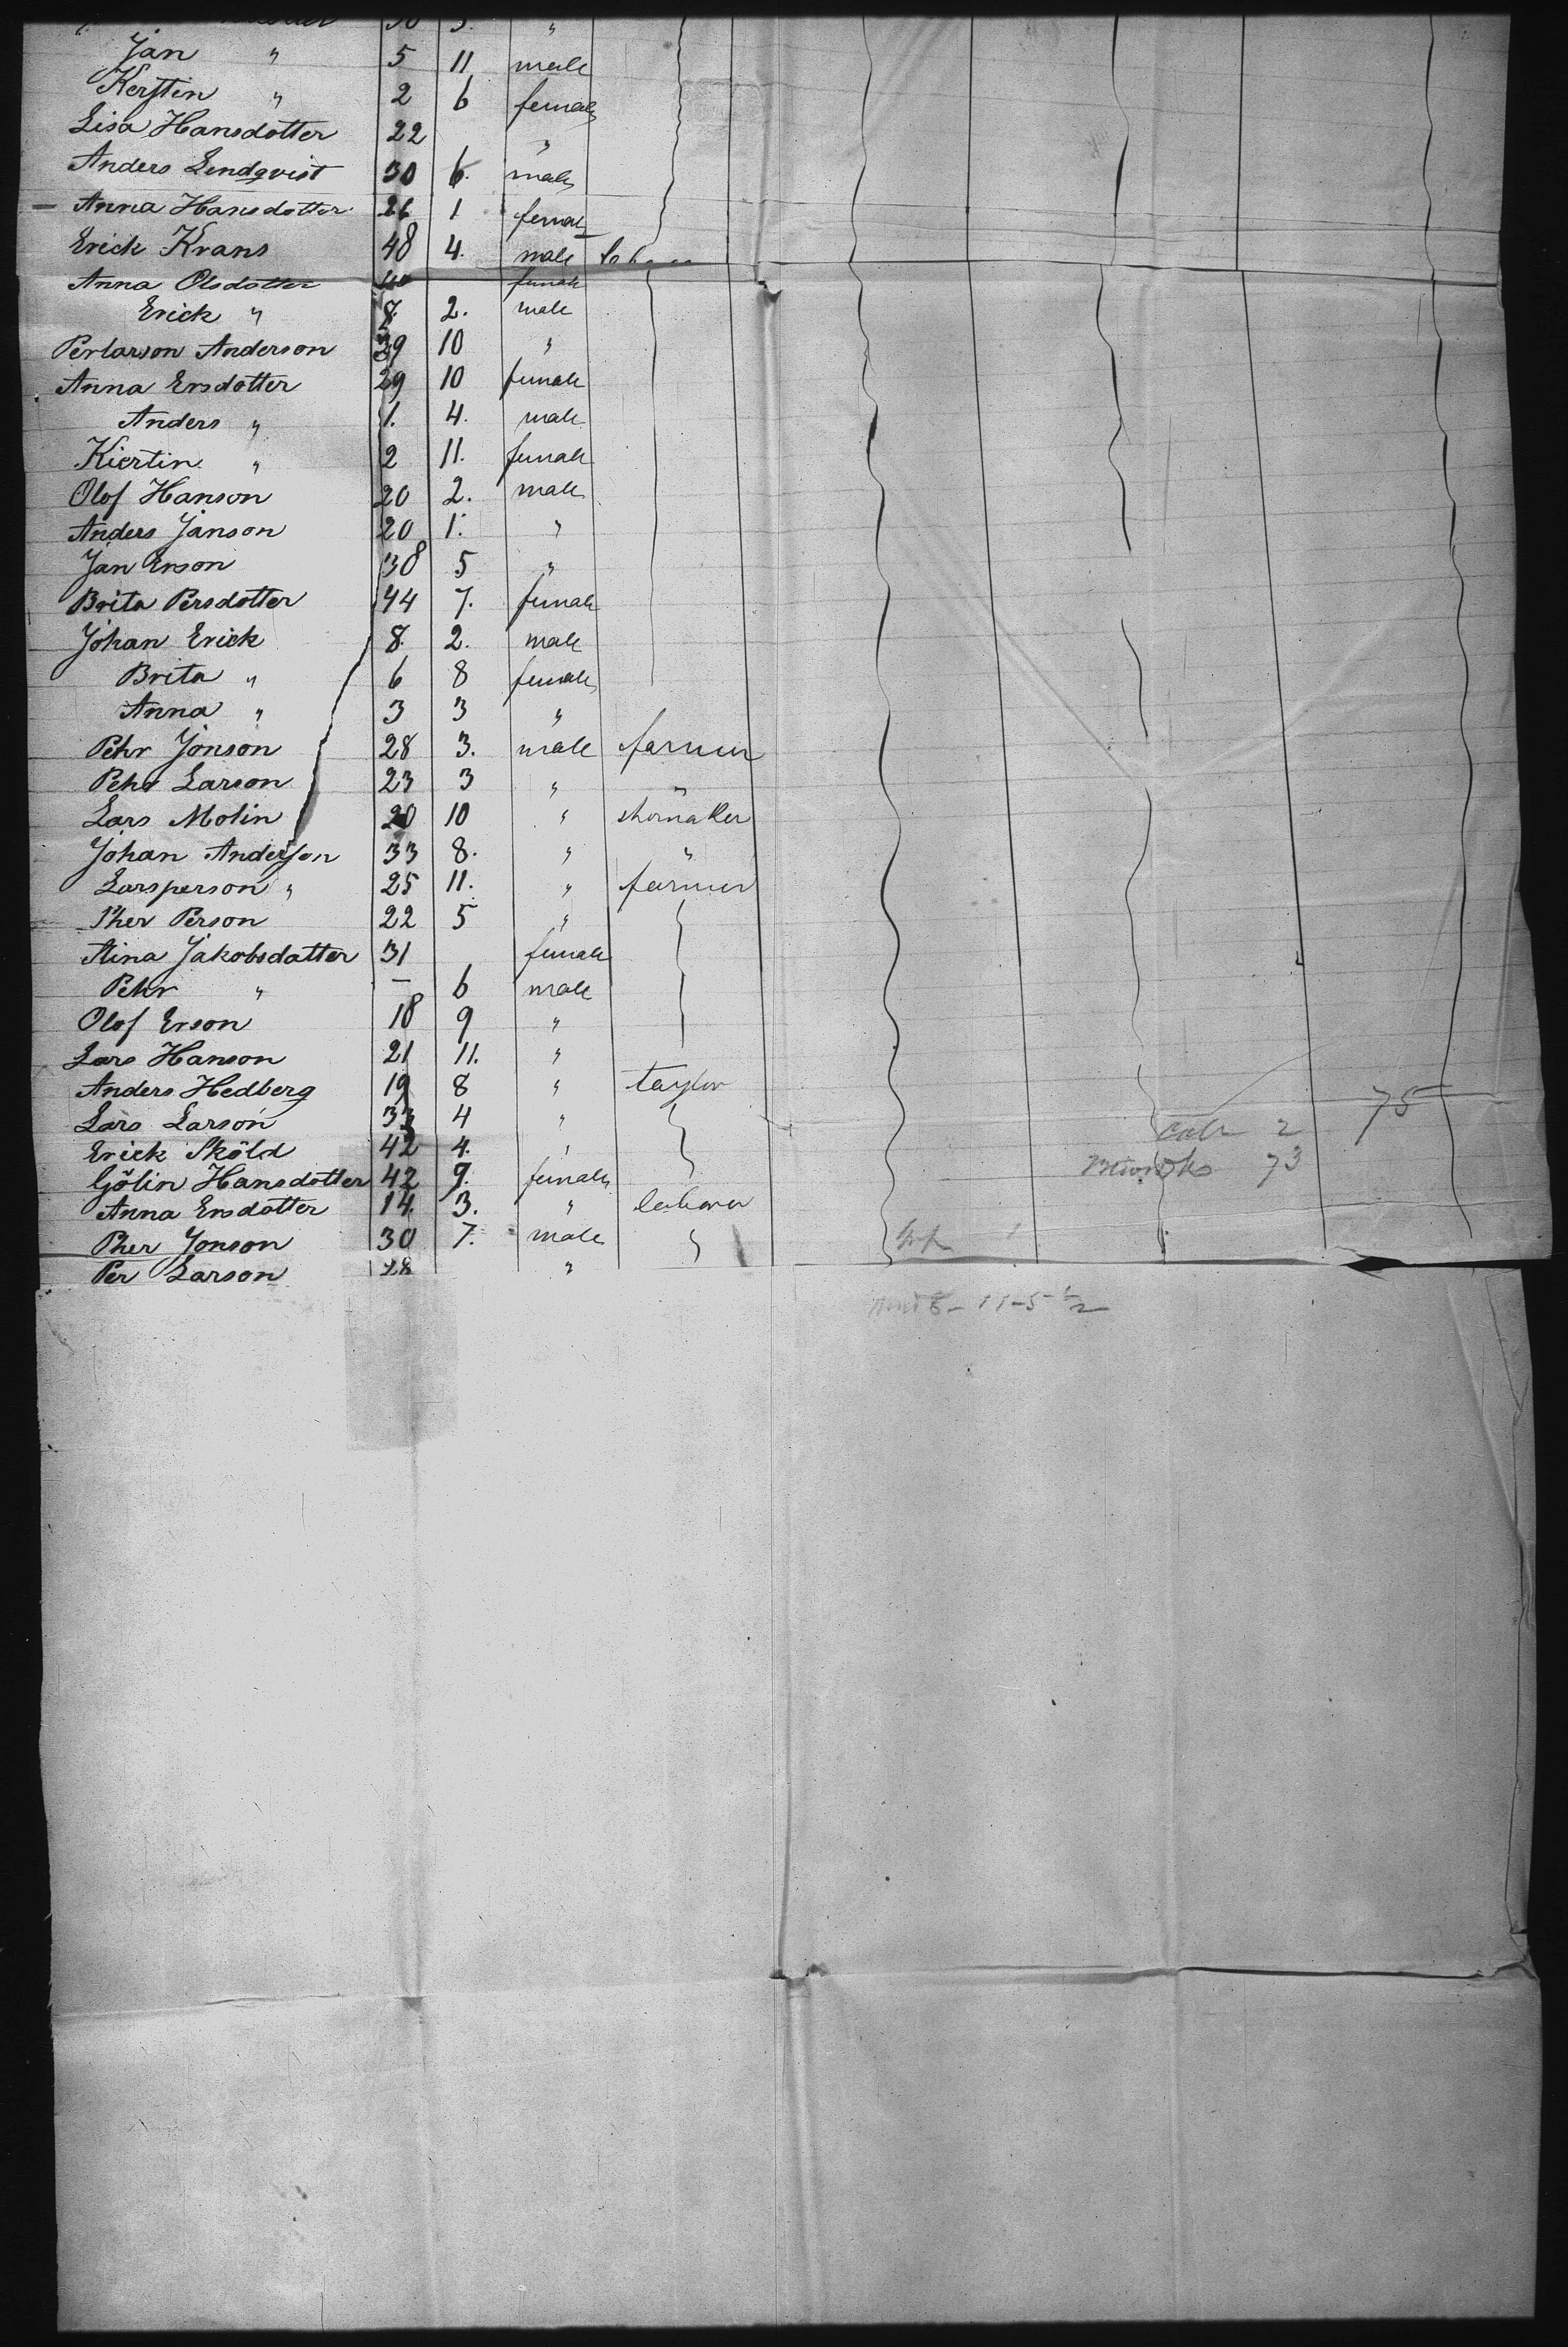 Jan " 5 11 male
Kerstin " 2 6 female
Lisa Hansdotter 22 "
Anders Lendqvist 30 6. male
Anna Hansdotter 26 1 female
Erick Krans 48 4. male
Anna Olsdotter female
Erick " 8. 2. male
Perlarson Anderson 39 10 "
Anna Ersdotter 29 10 female
Anders " 1. 4. male
Kiertin " 2 11. female
Olof Hanson 20 2. male
Anders Janson 20 1. "
Jan Erson 38 5 "
Brita Persdotter 44 7. female
Johan Erick 8. 2. male
Brita " 6 8 female
Anna " 3 3 "
Pehr Jonson 28 3. male farmer
Pehr Larson 23 3 " "
Lars Molin 20 10 " shomaker
Johan Anderson 33 8. " "
Larsperson " 25 11. " farmer
Pher Person 22 5 "
Stina Jakobsdatter 31 female
Pehr " – 6 male
Olof Erson 18 9 "
Lars Hanson 21 11. "
Anders Hedberg 19 8 " taylor
Lars Larson 33 4 "
Erick Sköld 42 4. "
Gölin Hansdotter 42 9. female
Anna Ersdotter 14. 3. " labarer
Pher Jonson 30 7. male "
Per Larson 28 "
75
2
73
11-5 1/2